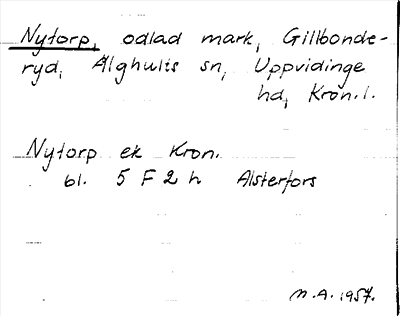 Nytorp, odlad mark, Gillbonde-
ryd, Älghults sn, Uppvidinge
hd, Kron.l.
Nytorp ek Kron.
bl. 5 F 2 h Alsterfors
M.A. 1957.